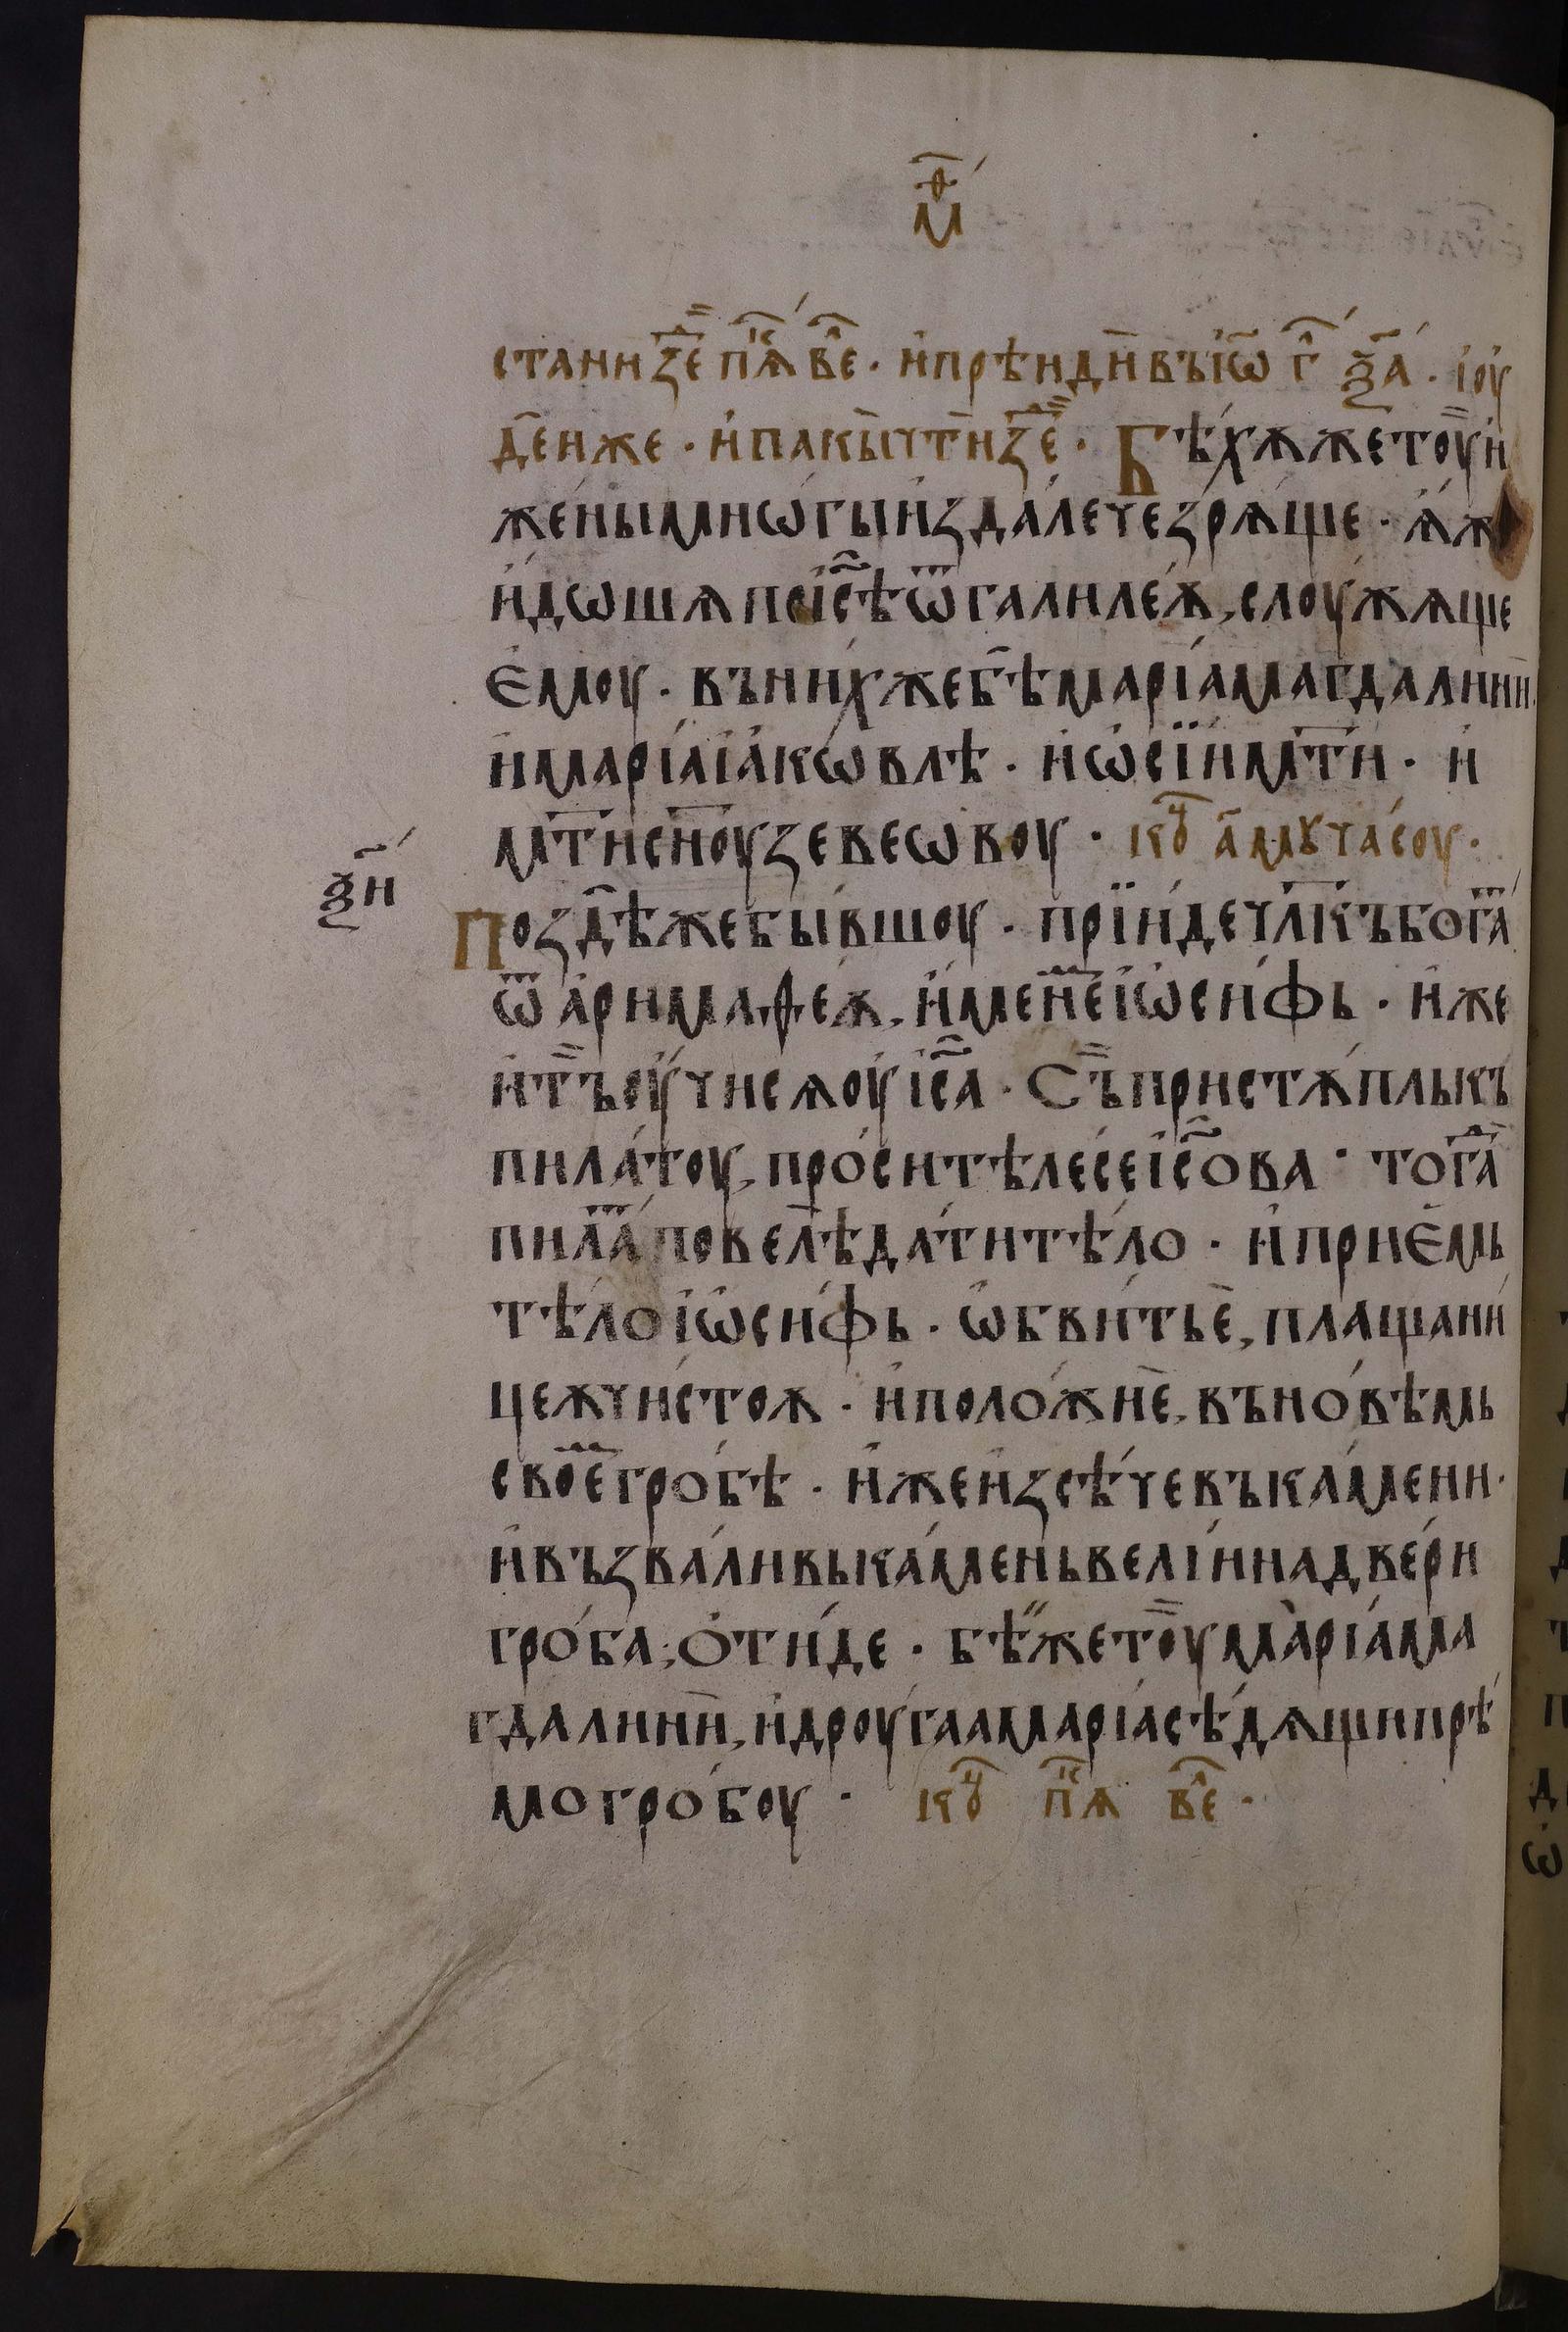 мѳ҃
стани зⷣе пⷦ҇ѧ влⷦ҇е · и҆ прѣиди въ іѡ҃ г҃л ѯ҃а · і҆оу
деи же · и҆ пакы чти зⷣе · Бѣ́хѫ же тоу и҆
же́ны мнѡ́гы и҆здале́че зрѧ́ще · ѧ҆́ж
и҆дѡшѧ по і҆с҃ѣ ѿ галиле́ѫ, слоу́жѧще
є҆моу · въ ни́х же бѣ марі́а магдалини
и҆ марі́а і҆а́кѡвлѣ · и҆ ѡ҆сїи мт҃и · и҆
мт҃и сн҃оу зеведеѡвоу · коⷰ҇ а҃мꙋ часоу ·
ѯ҃и
Поздѣ же бы́вшоу · прїи́де чл҃къ бога́ⷮ
ѿ а҆римаѳе́ѫ, и҆менеⷨ і҆ѡ҆си́фь · и҆же
и҆ тъ оу҆чи сѧ оу҆ і҆с҃а · Съ пристѫ́пль къ
пила́тоу, про́си тѣлесе і҆с҃ова · тогⷣа́
пила́ⷮ повелѣ да́ти тѣ́ло · и҆ прие́мь
тѣ́ло і҆ѡ҆си́фь · ѡ҆бви́ть е, плащани́
цеѫ чи́стоѫ · и҆ поло́жи е, въ но́вѣмь
своеⷨ гро́бѣ · и҆же и҆зсѣ́че въ ка́мени ·
и҆ възвали́вь ка́мень ве́лїи на две́ри
гро́ба, ѻ҆ти́де · бѣ́ же тоу марі́а ма
гдалини, и҆ дроу́гаа марі́а сѣ́дѧщи прѣ́
мо гро́боу · коⷰ҇ пⷦ҇ѧ влⷦ҇е ·